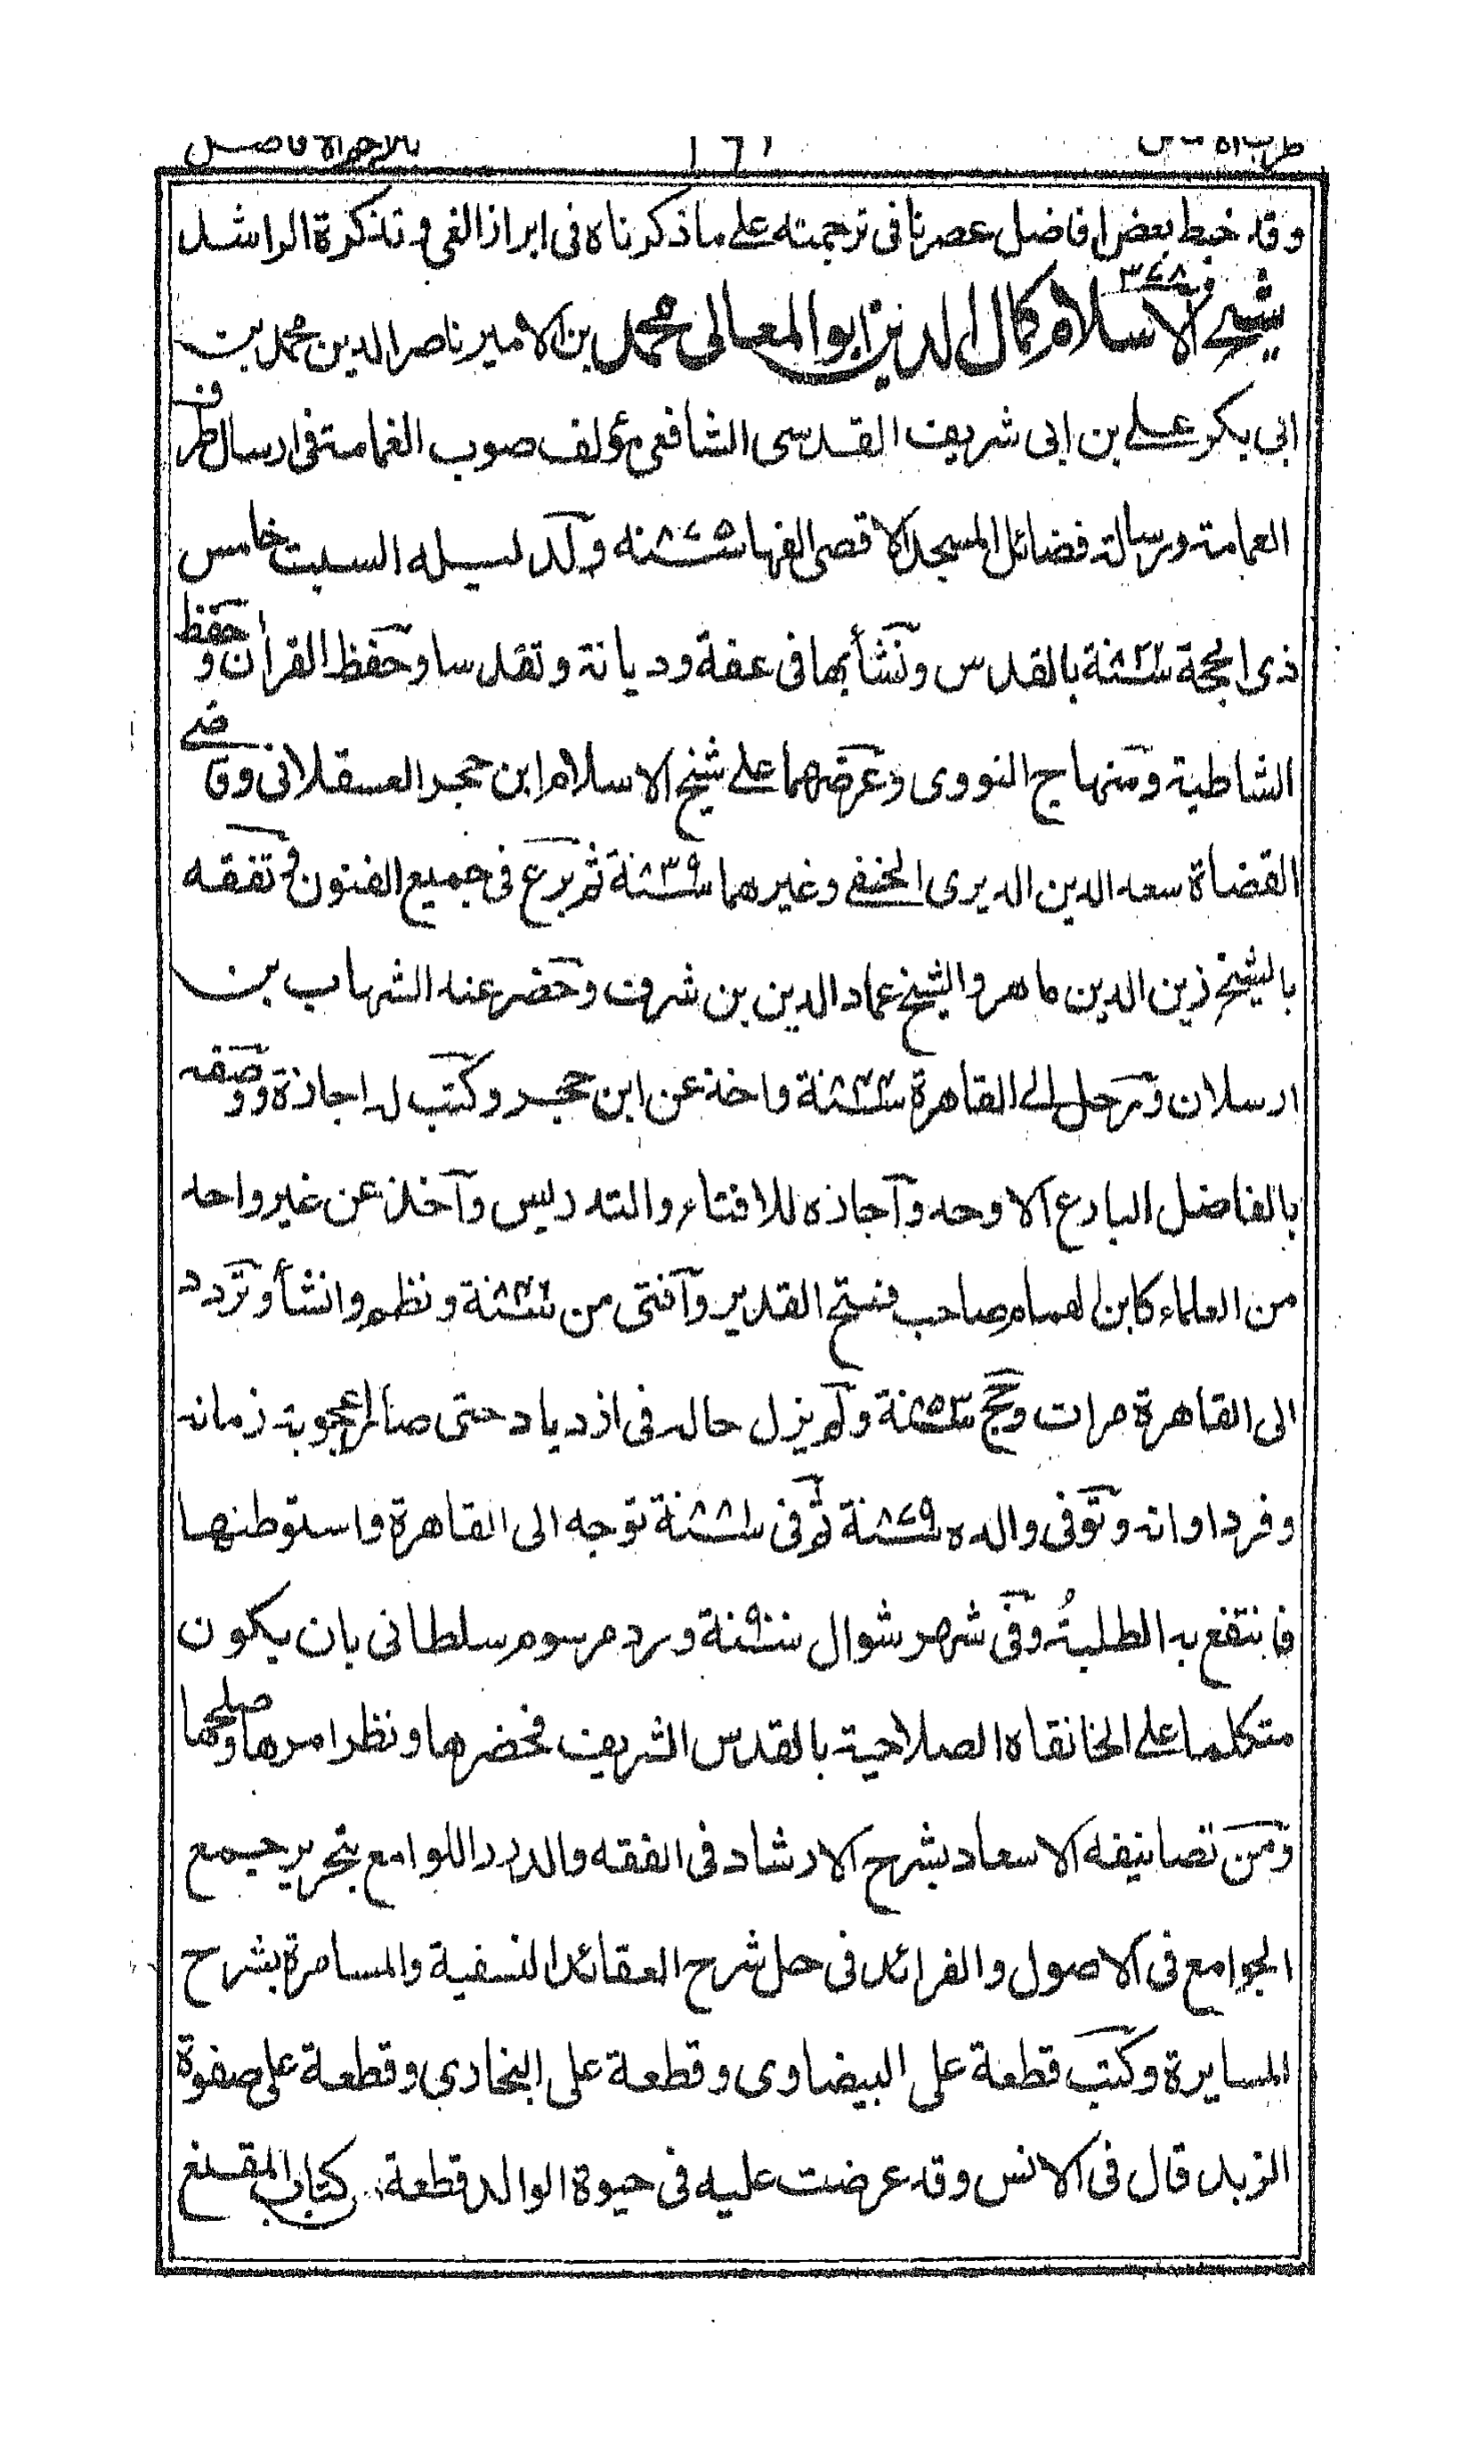 طرب الاماثل ١٦٢ بتراجم الافاضل
وقد خبط بعض افاضل عصرنا فى ترجمته على ما ذكرناه فى ابراز الغى وتذكرة الراشد
ف ٣٤٨
شيخ الاسلام كمال الدين ابو المعالى محمد بن الامير ناصر الدين محمد بن
ابى بكر على بن ابى شريف القدسى الشافعى مؤلف صوب الغمامة فى ارسال طرف
العمامة ورسالة فضائل المسجد الاقصى الفها سنة ٨٧٥ ولد ليله السبت خامس
ذى الحجة سنة ٨٢٢ بالقدس ونشأ بها فى عفة وديانة وتقدسا وحفظ القرأن وحفظ
الشاطبية ومنهاج النووى وعرضهما على شيخ الاسلام ابن حجر العسقلانى وقاضى
القضاة سعد الدين الديرى الحنفى وغيرهما سنة ٨٣٩ ثم برع فى جميع الفنون وتفقه
بالشيخ زين الدين ماهر والشيخ عماد الدين بن شرف وحضر عند الشهاب بن
ارسلان ورحل الى القاهرة سنة ٨٤٤ واخذ عن ابن حجر وكتب له اجازة ووصفه
بالفاضل البارع الاوحد وآجازه للافتاء والتدريس وآخذ عن غير واحد
من العلماء كابن الهمام صاحب فتح القدير وآفتى من سنة ٨٤٦ ونظم وانشأ وتردد
الى القاهرة مرات وحج سنة ٨٥٣ ولم يزل حاله فى ازدياد حتى صار اعجوبة زمانه
وفرد اوانه وتوفى والده سنة ٨٧٩ ثم فى سنة ٨٨١ توجه الى القاهرة واستوطنها
فانتفع به الطلبةُ وفى شهر شوال سنة ٩٠٠ ورد مرسوم سلطانى بان يكون
متكلما على الخانقاه الصلاحية بالقدس الشريف فحضرها ونظر امرها وصلحها
ومن تصانيفه الاسعاد بشرح الارشاد فى الفقه والدرر اللوامع بتحرير جمع
الجوامع فى الاصول والفرائد فى حل شرح العقائد النسفية والمسامرة بشرح
المسايرة وكتب قطعة على البيضاوى وقطعة على البخارى وقطعة على صفوة
الزبد قال فى الانس وقد عرضت عليه فى حيوة الوالد قطعة من كتاب المقنع